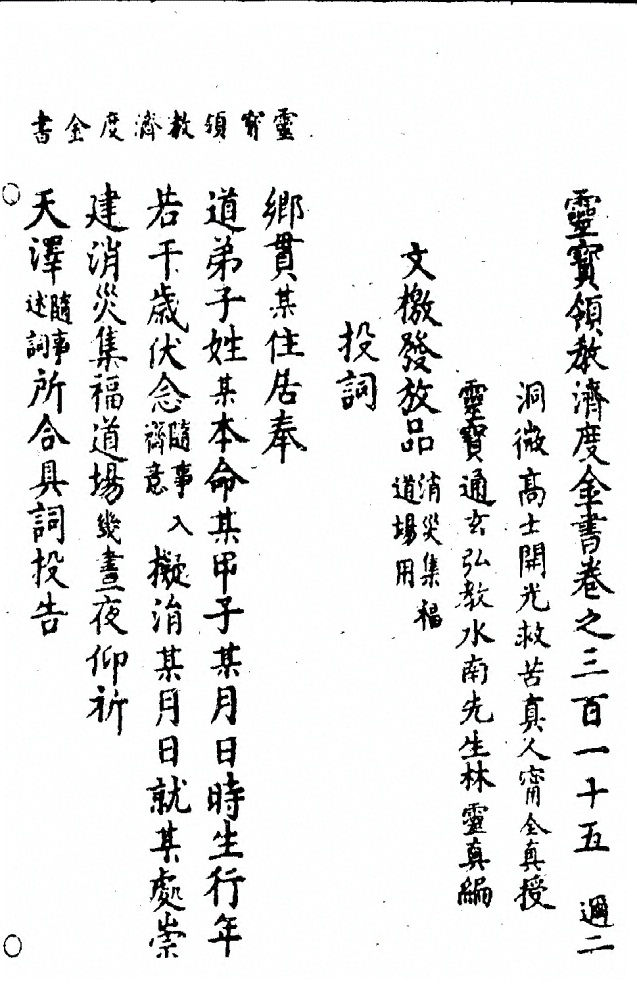 靈寶領教濟度金書
靈寶領教濟度金書卷之三百一十五 週二
洞微高士開光救苦真人甯全真授
靈寶通玄弘教水南先生林靈真編
文檄發放品消災集福道場用
投詞
鄉貫某住居奉
道弟子姓某本命某甲子某月日時生行年
若干歲伏念隨事入齋意擬涓某月日就某處崇
建消災集福道場幾晝夜仰祈
天澤隨事述詞所合具詞投告